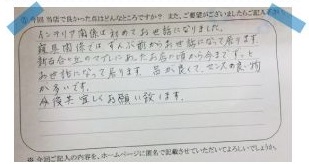 今回 当店で良かった点はどんなところですか? また、ご要望がございましたらご記入下さい
インテリア関係は初めてお世話になりました。
寝具関係ではずいぶ前からお世話になって居ります
お店の頃から今まですっと
お世話になって居ります。品が良くて、センスの良い物
が多いです。
今後共宜しくお願い致します。
※今回ご記入の内容を、ホームページに匿名で記載させていただいてよろしいでしょうか。